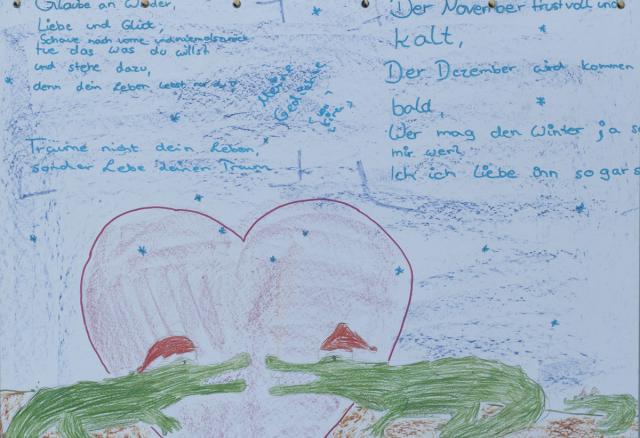 Glaube an Wunder,
Liebe und Glück,
Schaue nach vorne und niemals zurück
tue das was du willst
und stehe dazu,
denn dein Leben lebst nur du
Träume nicht dein Leben,
sonder Lebe deinen Traum
Meine
Gedanke
Der November trustvoll und
kalt,
Der Dezember wird kommen
bald,
Wer mag den Winter ja s
mir wer?
Ich ich Liebe ihn sogar s